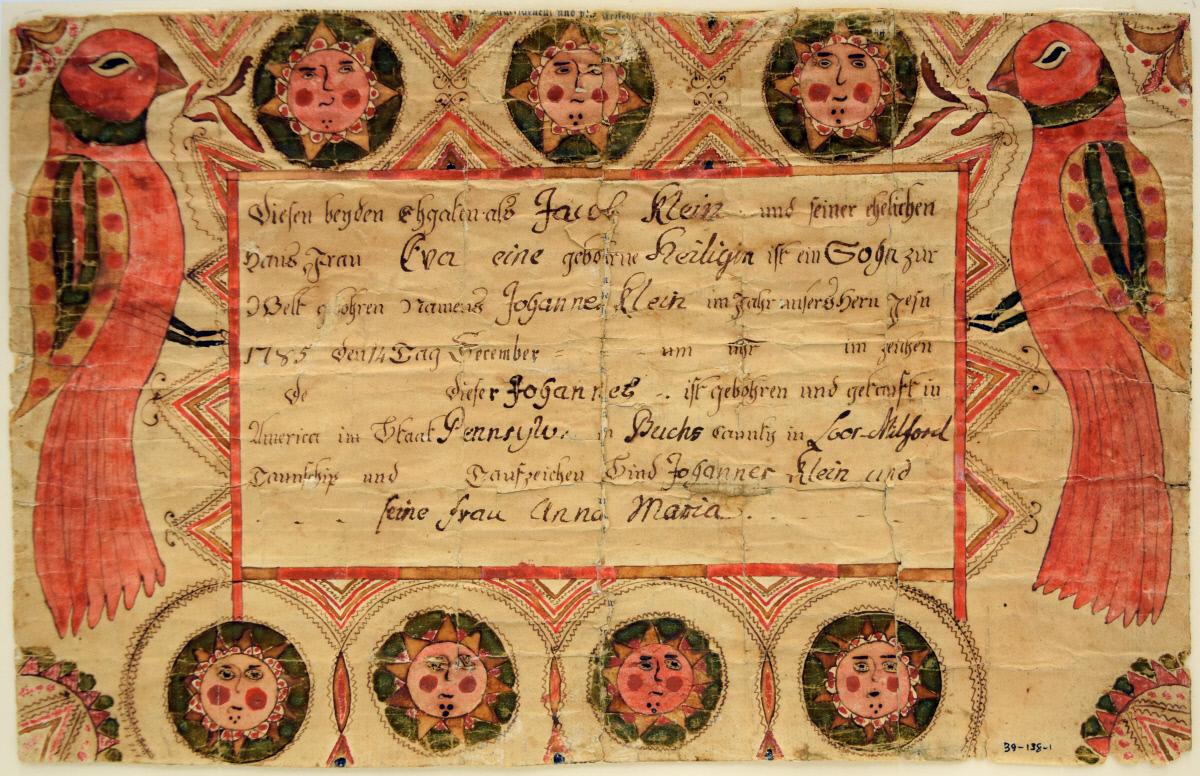 Diesen beyden Ehgaten als Jacob Klein und seiner ehelichen
Haus Frau Eva eine gebohrne Heiligin ist ein Sohn zur
Welt gebohren Namens Johannes Klein im Jahr unsers Hern Jesu
1785 den 14 Tag December = um uhr im zeichen
de dieser Johannes .. ist gebohren und getauft in
America im Staat Pennsylv. in Buchs Caunty in Loor-Milford
Taunschip und Taufzeichen Sind Johannes Klein und
seine frau Anna Maria
39-138-1